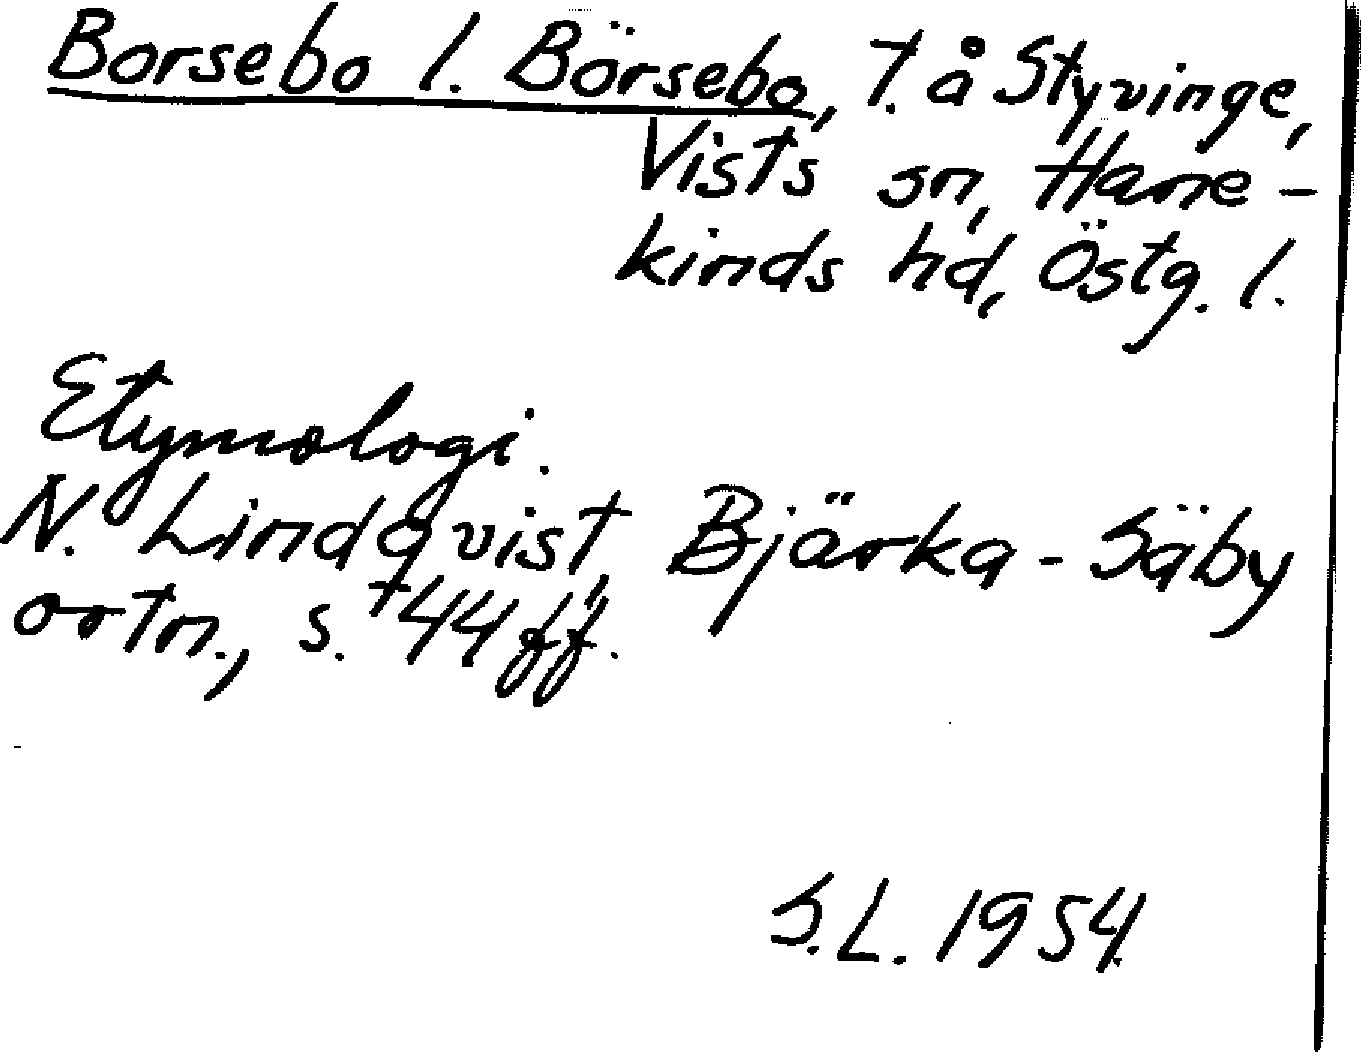 Borsebo l. Börsebo, T. å Styvinge,
Vists sn, Hane-
kinds hd, Östg. l.
Etymologi.
N. Lindqvist, Bjärka-Säby
ortn., s. 44 ff.
S.L. 1954